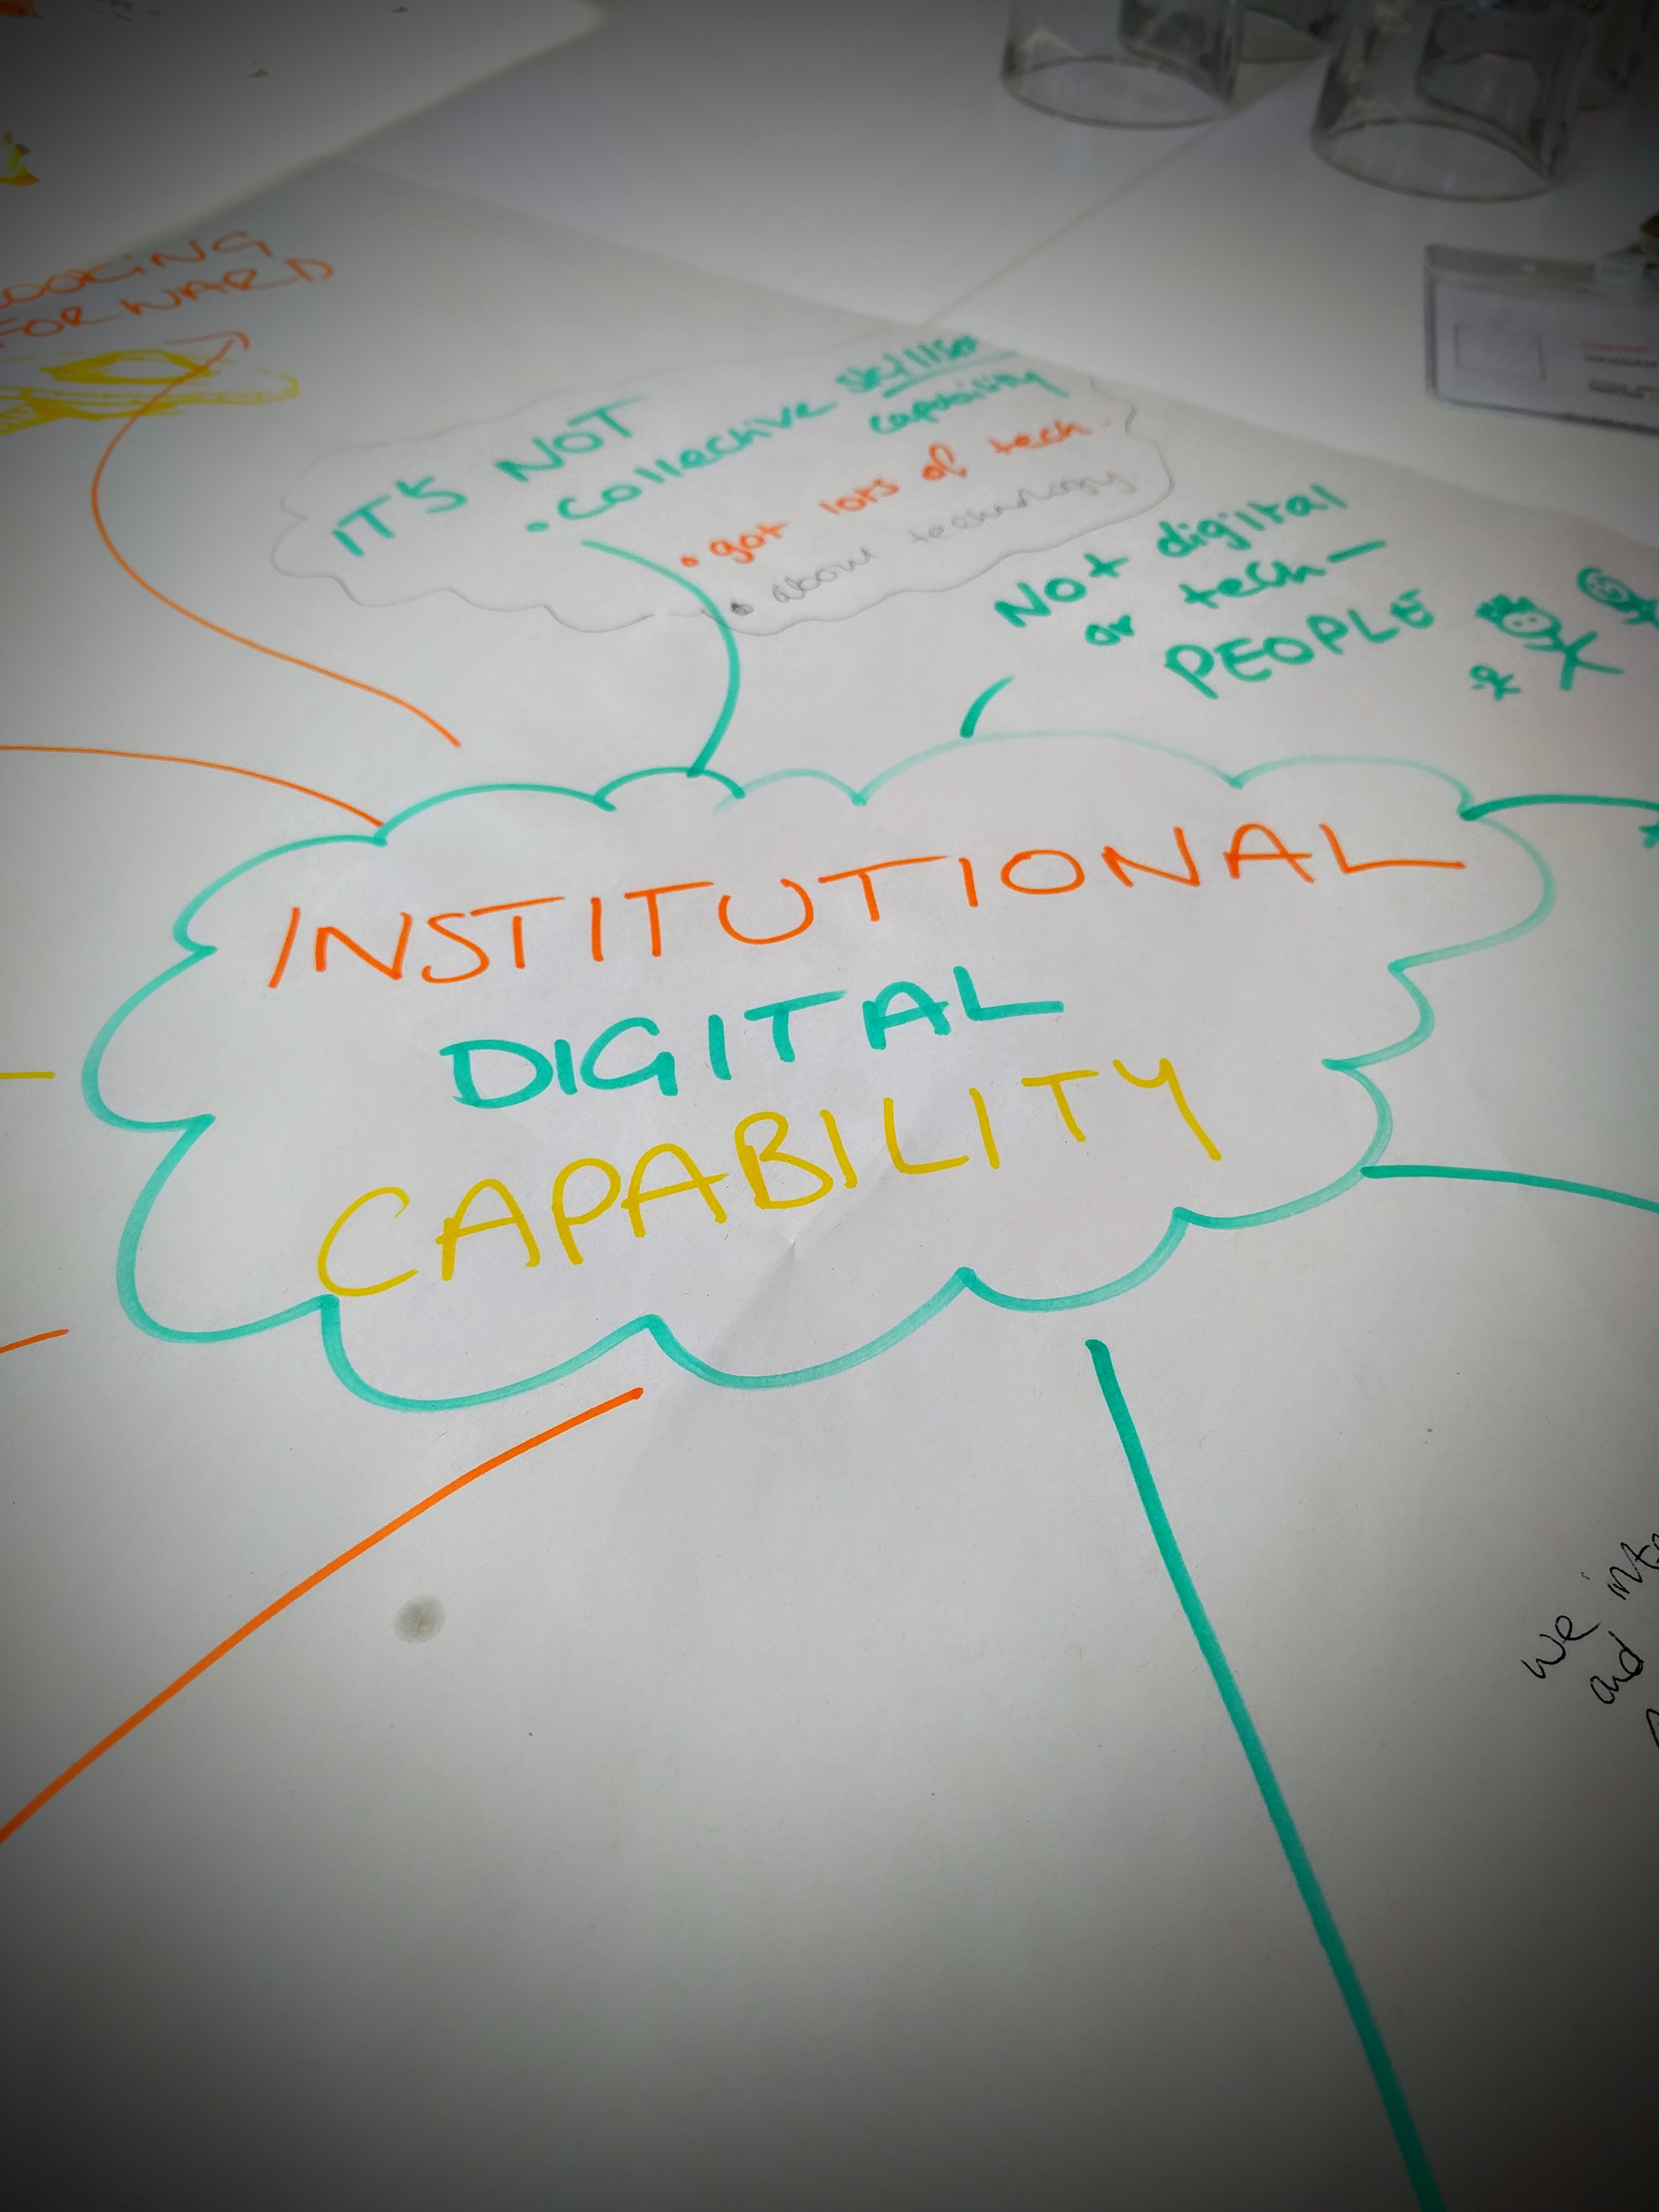 LOOKING
FORWARD
IT'S NOT
• collective skillset
capability
• got lots of tech.
• about technology
Not digital
or tech—
PEOPLE
INSTITUTIONAL
DIGITAL
CAPABILITY
we
and